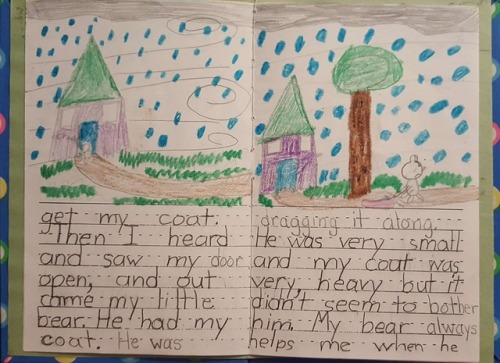 get my coat.
Then I heard
and saw my door
open, and out
came my little
bear. He had my
coat. He was
dragging it along.
He was very small
and my coat was
very, heavy but it
didn't seem to bother
him. My bear always
helps me when he